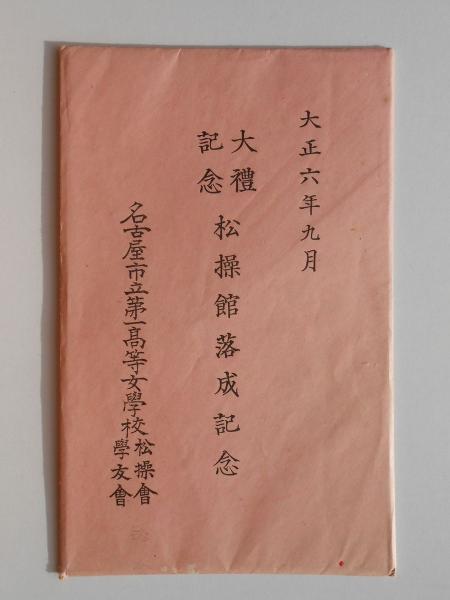 大正六年九月
大禮記念 松操館落成記念
名古屋市立第一高等女學校松操會學友會